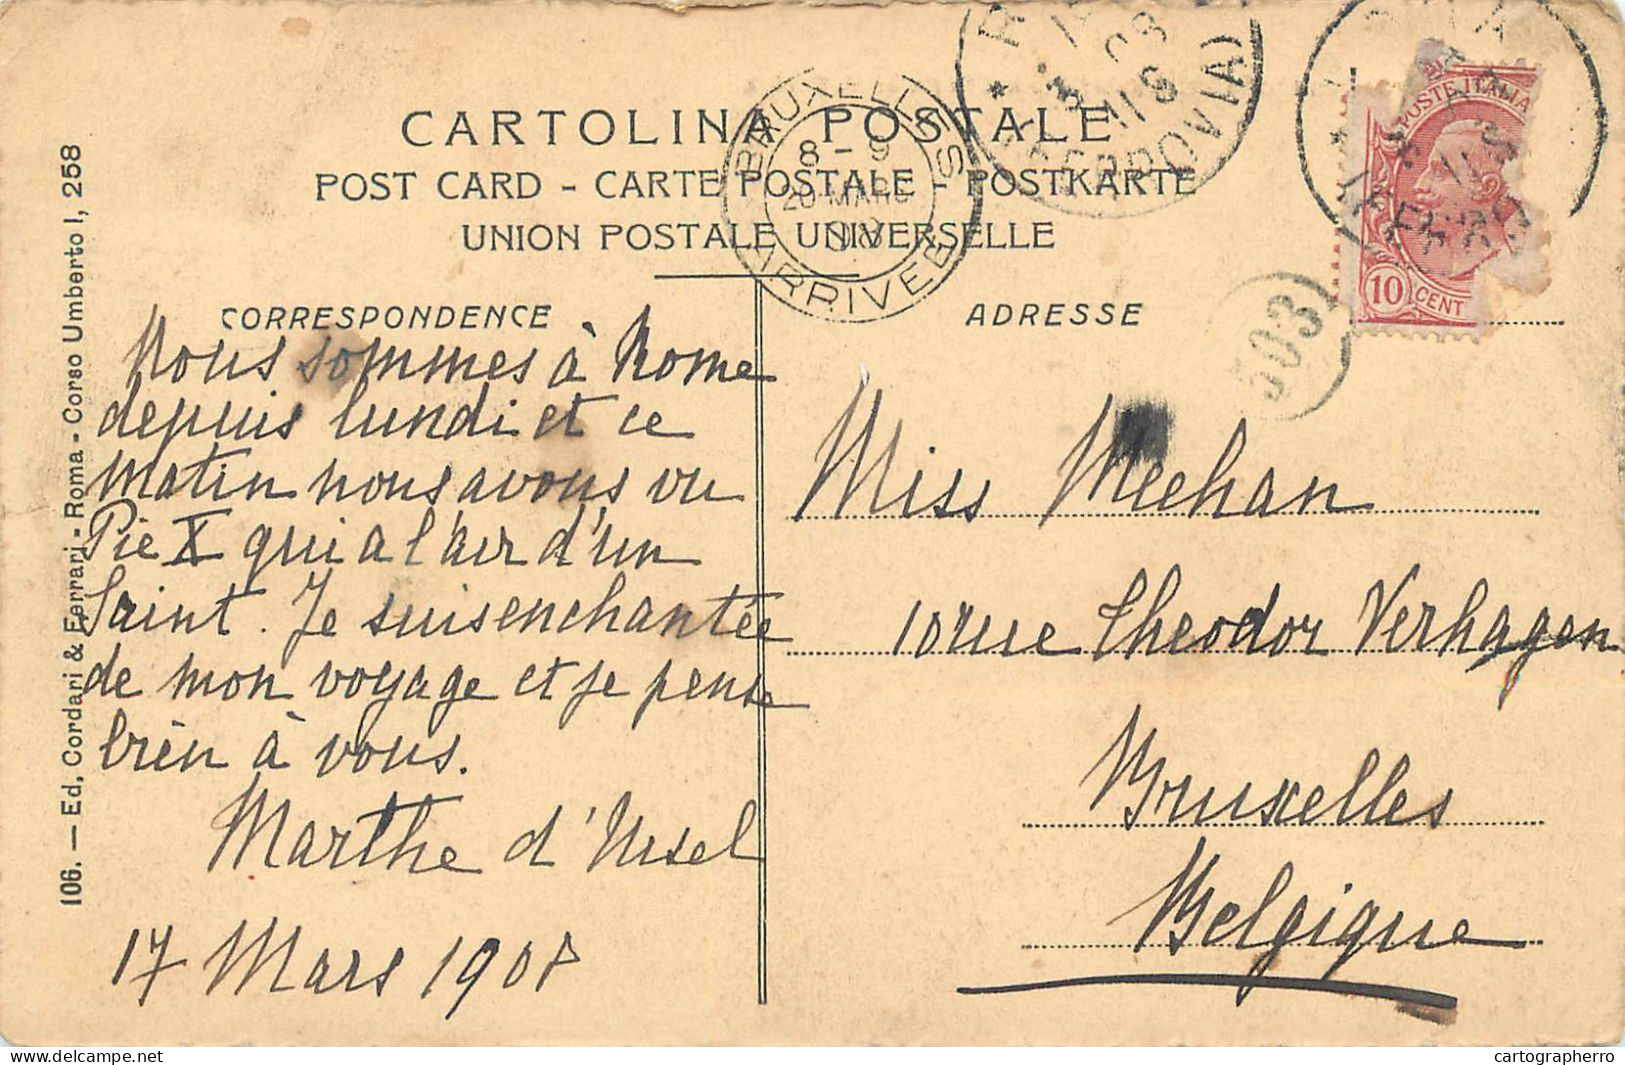 CARTOLINA POSTALE
POST CARD - CARTE POSTALE - POSTKARTE
UNION POSTALE UNIVERSELLE
BRUXELLES
8 - 9
20 MARS
1908
ARRIVEE
08
11 S
FERROVIA)
POSTE ITALIANE
10 CENT
503
CORRESPONDENCE
Nous sommes à Rome
depuis lundi et ce
matin nous avons vu
Pie X qui a l'air d'un
Saint. Je suis enchantée
de mon voyage et je pense
bien à vous.
Marthe d'Ursel
17 Mars 1908
ADRESSE
Miss Meehan
10 rue Theodor Verhagen
Bruxelles
Belgique
106. — Ed. Cordari & Ferrari - Roma - Corso Umberto I, 258
cartographerro